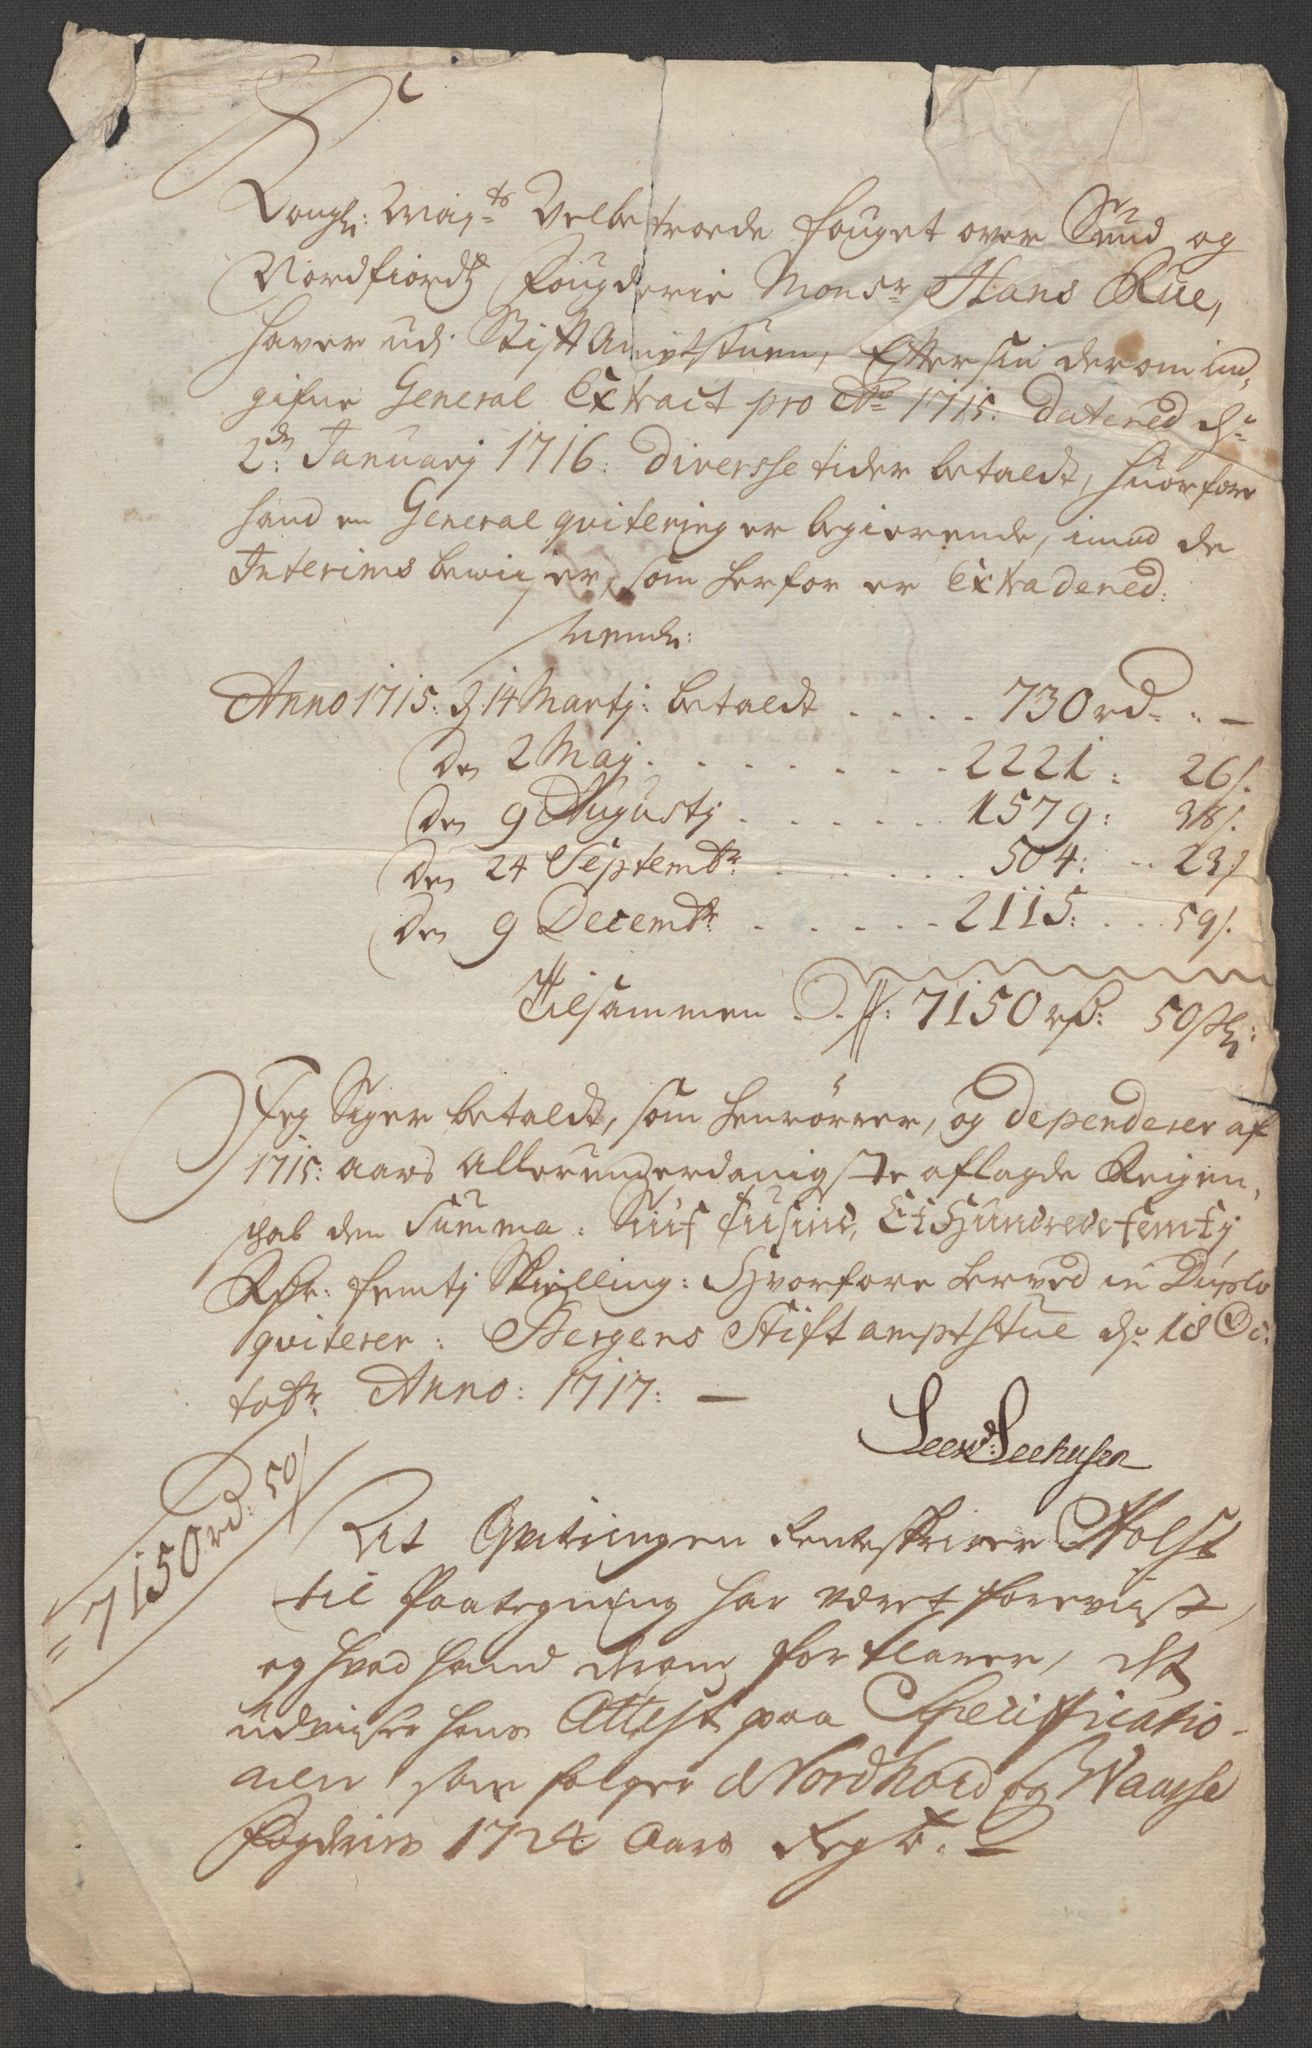 Kongl: May:ts Velbetroede fouget over Sund og
Nordfiordtz Fougderie Monsr Hans Rue,
hafver udj Stiftamptstuen, Efter sin derom ind-
gifne General Extract pro Ao 1715. Datered d:
2den Januarj 1716: diversse tider betaldt, huorfore
hand en General qvitering er begierende, imod de
Interims beviiser, som herfor er Extradered.
Nemlig:
Anno 1715: d: 14 Martj: betaldt . . . . 730 rd - . -
den 2 Maj . . . . . . . 2221: 26 s.
den 9 Augustj . . . . . . 1579: 38 s.
den 24 Septembr: . . . . . . 504: . . 23 s
den 9 Decembr: . . . . . 2115: . . . 59 s.
Tilsammen . . . 7150 rdr: 50 sk:
Jeg Siger betaldt, som henrörer, og dependerer af
1715: aars allerunderdanigste aflagde Reigen-
skab den Summa: Siuf Tusind, Et Hundrede femtj
Rdr: femtj Skielling: Hvorfore herved in Duplo
qviterer: Bergens Stiftamptstue d: 18 Oc-
tobr: Anno: 1717: -
Seehusen
7150 rd: 50 s
At Qviteringen Renteskriver Holst
til Paategning har været foreviist,
og hvad hand derom forklarer, det
udviiser hans Attest paa Specificatio-
nen som følger Nordhord og Waasse
Fogderies 1724 Aars Regsk.